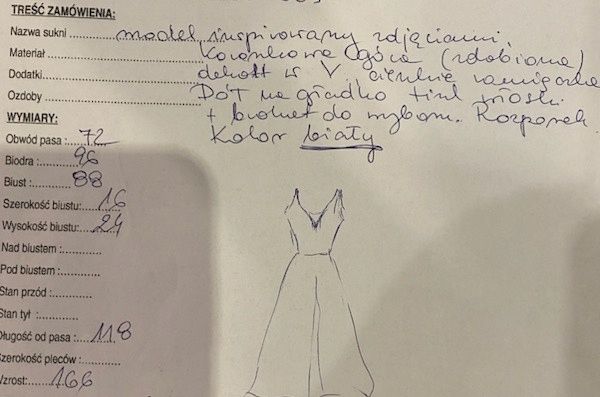 TREŚĆ ZAMÓWIENIA:
Nazwa sukni model inspirowany zdjęciami.
Materiał Koronkowa Góra (zdobiona)
Dodatki dekolt w V, cienkie ramiączka
Ozdoby Dół na gładko tiul włoski
+ brokat do wyboru. Rozporek
Kolor biały
WYMIARY:
Obwód pasa: 72
Biodra: 96
Biust: 88
Szerokość biustu: 16
Wysokość biustu: 24
Nad biustem:
Pod biustem:
Stan przód:
Stan tył:
Długość od pasa: 118
Szerokość pleców:
Wzrost: 166